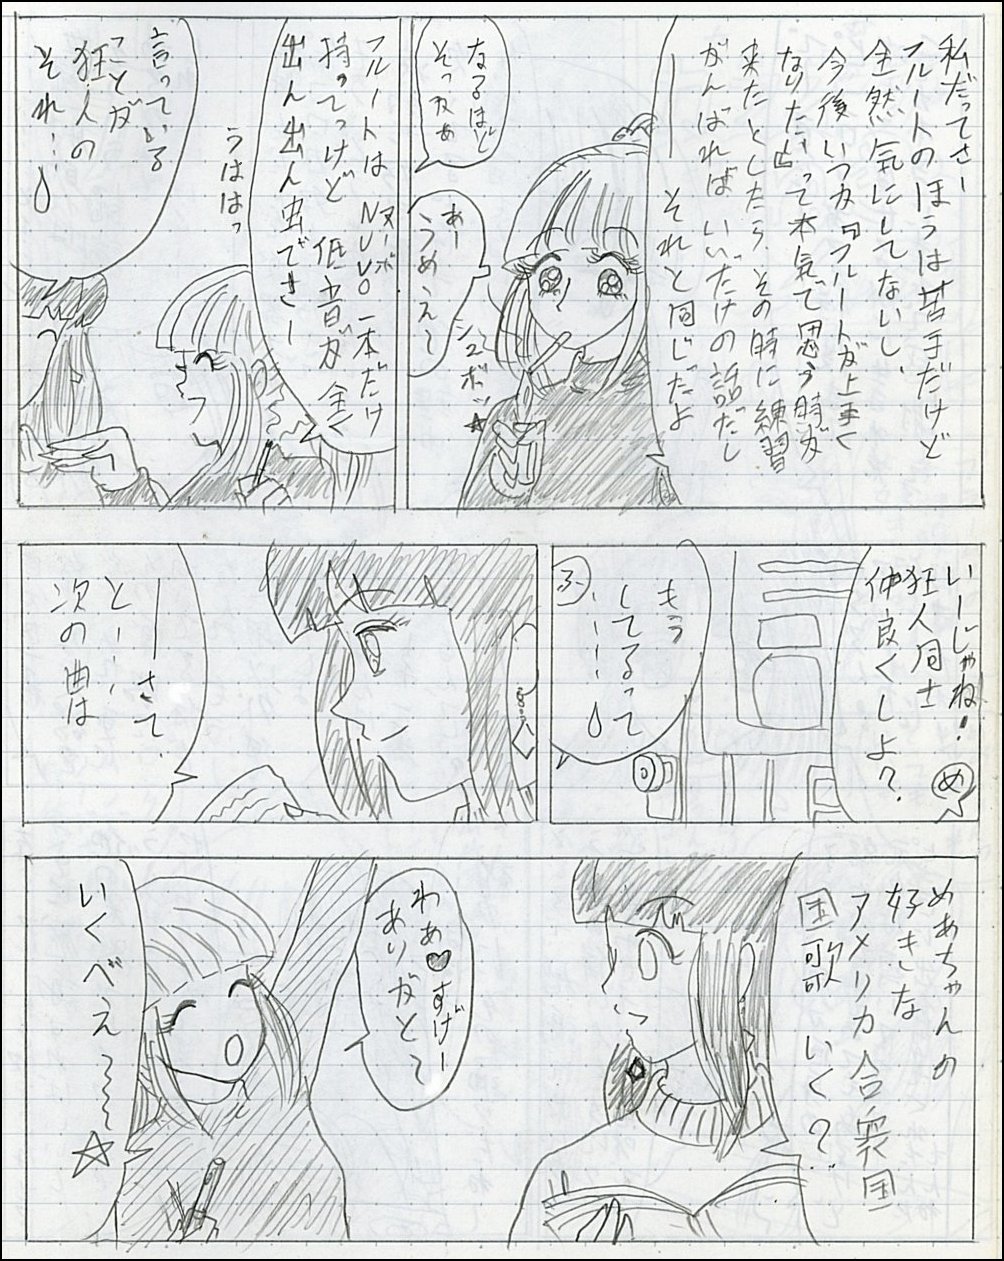 私だってさー
フルートのほうは苦手だけど
全然気にしてないし、
今後いつかフルートが上手く
なりたいって本気で思う時が
来たとしたら、その時に練習
がんばればいいだけの話だし
それと同じだったよ
なるほど
そっかぁ
あー
うめぇえ〜
シュボッ☆
フルートは NUVO 一本だけ
ヌーボ
持ってっけど 低音が全く
出ん出ん虫でさー
うははっ
言っている
ことが
狂人の
それ…
いーじゃね!
狂人同士
仲良くしよ?
め
もう
してるって
……
ふ
ーさて
と…
次の曲は
めあちゃんの
好きな
アメリカ合衆国
国歌いく?
わぁ♥すげー
ありがと〜
いくべえ〜〜☆